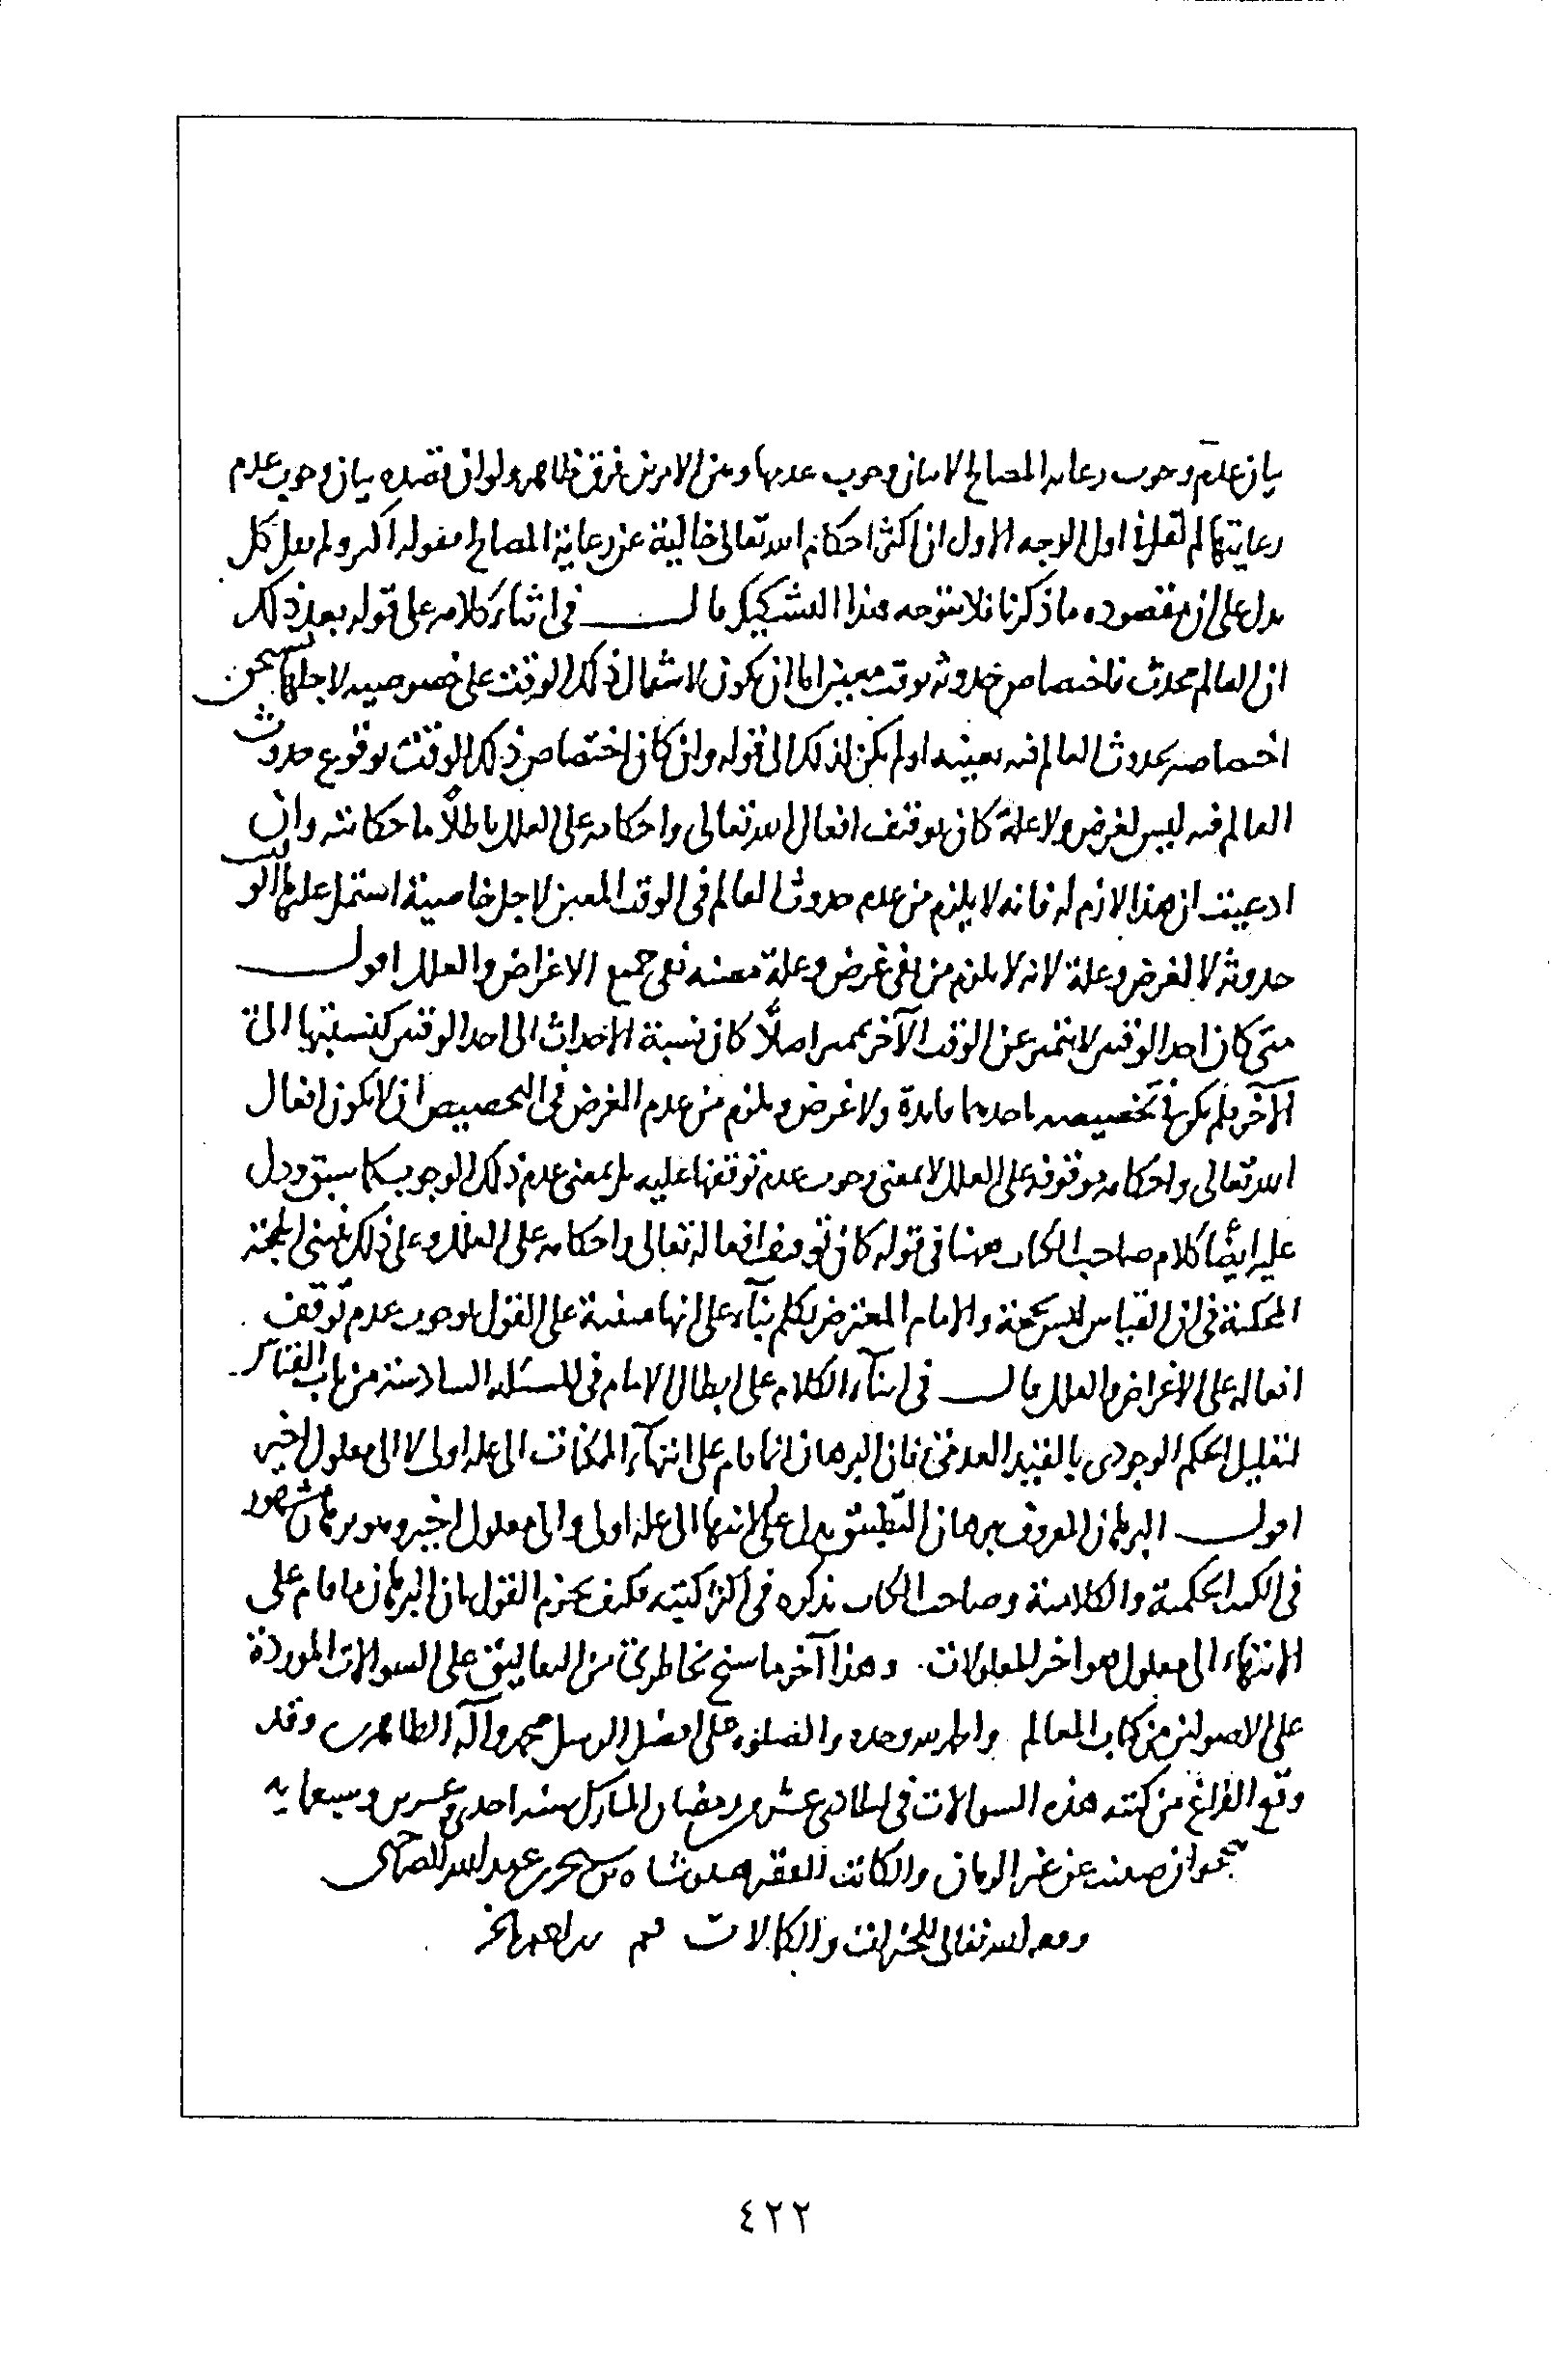 بيان عدم وجوب رعاية المصالح لا بيان وجوب عدمها وبين الامرين فرق ظاهر ولو ان قصده بيان وجوب عدم
رعايتها لم تعلق اول الوجه الاول ان اكثر احكام الله تعالى خالية عن رعاية المصالح فقوله اكثر ولم يقل كل
يدل على ان مقصوده ما ذكرنا فلا يتوجه هذا التشكيك قال في اثناء كلامه على قوله بعد ذلك
ان العالم محدث فاختصاص حدوثه بوقت معين اما ان يكون لاشتمال ذلك الوقت على خصوصية لاجلها يستحق
اختصاصه بحدوث العالم فيه بعينه او لم يكن لذلك الى قوله وان كان اختصاص ذلك الوقت بوقوع حدوث
العالم فيه ليس لغرض ولا علة كان توقف افعال الله تعالى واحكامه على العلل باطلًا ما حكايته وان
ادعيت ان هذا لازم له فانه لا يلزم من عدم حدوث العالم في الوقت المعين لاجل خاصية اشتمل عليها الوقت
حدوثه لا لغرض وعلة لانه لا يلزم من نفي غرض وعلة معينة نفي جميع الاغراض والعلل اقول
متى كان احد الوقتين لا يتميز عن الوقت الآخر بمميز اصلًا كان نسبة الاحداث الى احد الوقتين كنسبتها الى
الآخر فلم يكن في تخصيصه باحدهما فايدة ولا غرض ويلزم من عدم الغرض في التخصيص ان لا يكون افعال
الله تعالى واحكامه موقوفة على العلل لا بمعنى وجوب عدم توقفها عليه بل بمعنى عدم ذلك الوجوب كما سبق ودل
عليه ايضًا كلام صاحب الكتاب ههنا في قوله كان توقف افعاله تعالى واحكامه على العلل وعلى ذلك تبتنى الحجة
المحكية في ان القياس ليس بحجة والامام المعترض يكلم بناء على انها مبنية على القول بوجوب عدم توقف
افعاله على الاغراض والعلل قال في اثناء الكلام على ابطال الامام في المسئلة السادسة من باب القياس
لتعليل الحكم الوجودي بالقيد العدمي فان البرهان انما قام على انتهاء الممكنات الى علة اولى لا الى معلول اخير
اقول البرهان المعروف ببرهان التطبيق يدل على انتهائها الى علة اولى والى معلول اخير وهو برهان مشهور
في الكتب الحكمية والكلامية وصاحب الكتاب يذكره في اكثر كتبه فكيف يجزم القول بان البرهان ما قام على
الانتهاء الى معلول هو اخر المعلولات وهذا آخر ما سنح بخاطري من التعاليق على السوالات الموردة
على الاصولين من كتاب المعالم والحمد لله وحده والصلوة على افضل الرسل محمد وآله الطاهرين وقد
وقع الفراغ من كتبه هذه السوالات في الحادي عشر من رمضان المبارك سنة احدى وعشرين وسبعماية
صينت عن غير الزمان والكاتب الفقير هندوشاه بن سنجر بن عبد الله الصاحبي
وفقه الله تعالى للخيرات والكمالات
٤٢٢